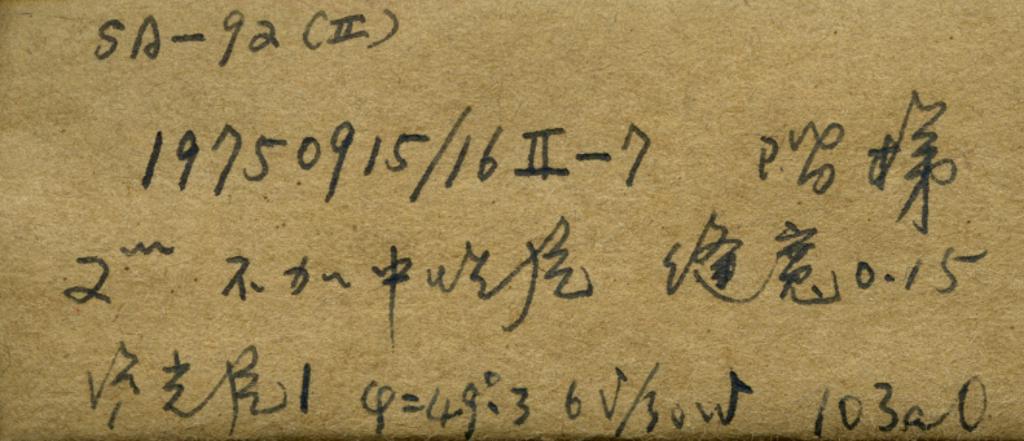 SA-92 (II)
19750915/16 II-7 阶梯
2m 不加中性 缝宽 0.15
光 1 φ=49°.3 6V/30W 103aO